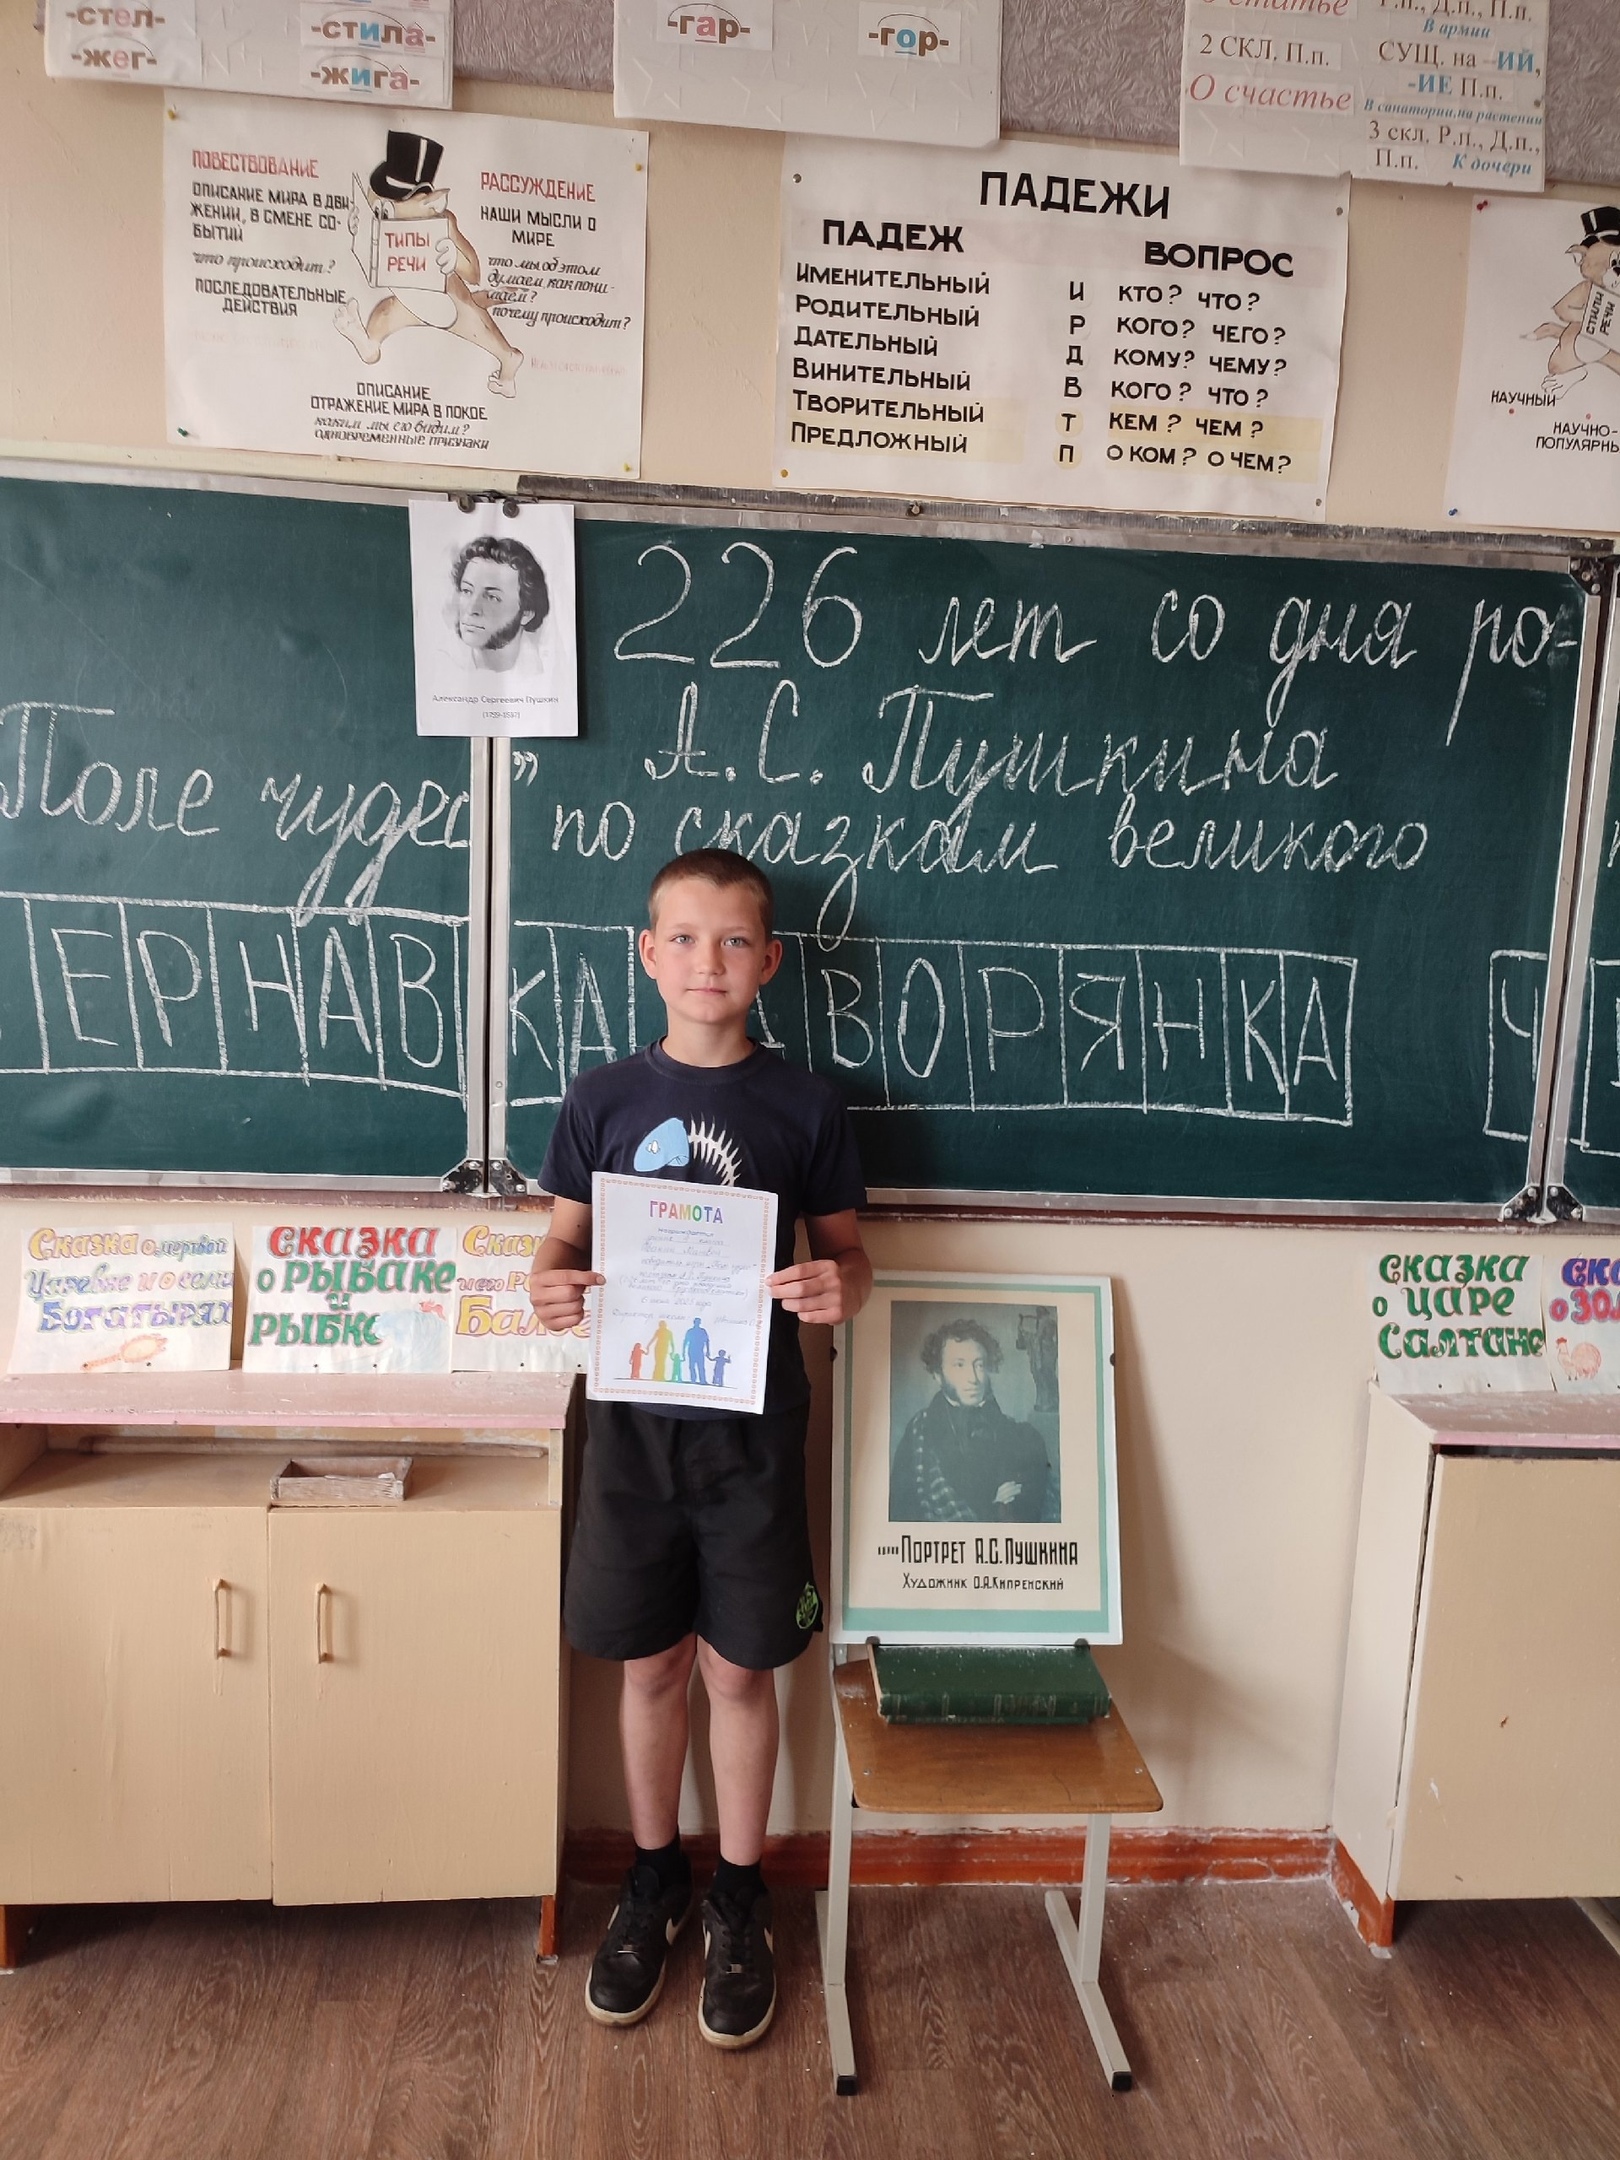 -стел-
-стила-
-жег-
-жига-
-гар-
-гор-
2 СКЛ. П.п.
О счастье
Р.п., Д.п., П.п.
В армии
СУЩ. на -ИЙ,
-ИЕ П.п.
В санатории, на растении
3 скл. Р.п., Д.п.,
П.п. К дочери
ПОВЕСТВОВАНИЕ
ОПИСАНИЕ МИРА В ДВИ-
ЖЕНИИ, В СМЕНЕ СО-
БЫТИЙ
что происходит?
ПОСЛЕДОВАТЕЛЬНЫЕ
ДЕЙСТВИЯ
ТИПЫ
РЕЧИ
РАССУЖДЕНИЕ
НАШИ МЫСЛИ О
МИРЕ
что мы об этом
думаем, как пони-
маем?
почему происходит?
ОПИСАНИЕ
ОТРАЖЕНИЕ МИРА В ПОКОЕ
каким мы его видим?
ОДНОВРЕМЕННЫЕ ПРИЗНАКИ
ПАДЕЖИ
ПАДЕЖ ВОПРОС
ИМЕНИТЕЛЬНЫЙ И КТО? ЧТО?
РОДИТЕЛЬНЫЙ Р КОГО? ЧЕГО?
ДАТЕЛЬНЫЙ Д КОМУ? ЧЕМУ?
ВИНИТЕЛЬНЫЙ В КОГО? ЧТО?
ТВОРИТЕЛЬНЫЙ Т КЕМ? ЧЕМ?
ПРЕДЛОЖНЫЙ П О КОМ? О ЧЕМ?
СТИЛИ
РЕЧИ
НАУЧНЫЙ
НАУЧНО-
ПОПУЛЯРНЫ
Александр Сергеевич Пушкин
(1799-1837)
226 лет со дня ро-
А.С. Пушкина
Поле чудес"
по сказкам великого
ЕРНАВКА
ВОРЯНКА
Ч
ГРАМОТА
награждается
6 июня
Директор школы
Сказка о мертвой
Царевне и о семи
Богатырях
Сказка
о Рыбаке
и
Рыбке
Сказк
и его Ра
Балде
Сказка
о царе
Салтане
Ска
о Зол
Портрет А.С.Пушкина
Художник О.А.Кипренский